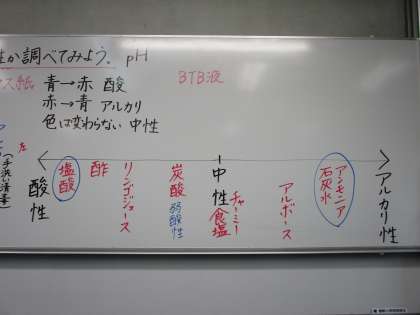 性か調べてみよう。 pH
ス紙 青→赤 酸 BTB液
赤→青 アルカリ
色は変わらない 中性
(手洗い消毒)
酸性
塩酸
酢
リンゴジュース
炭酸 弱酸性
中性
食塩
チャーミー
アルボース
アンモニア
石灰水
アルカリ性